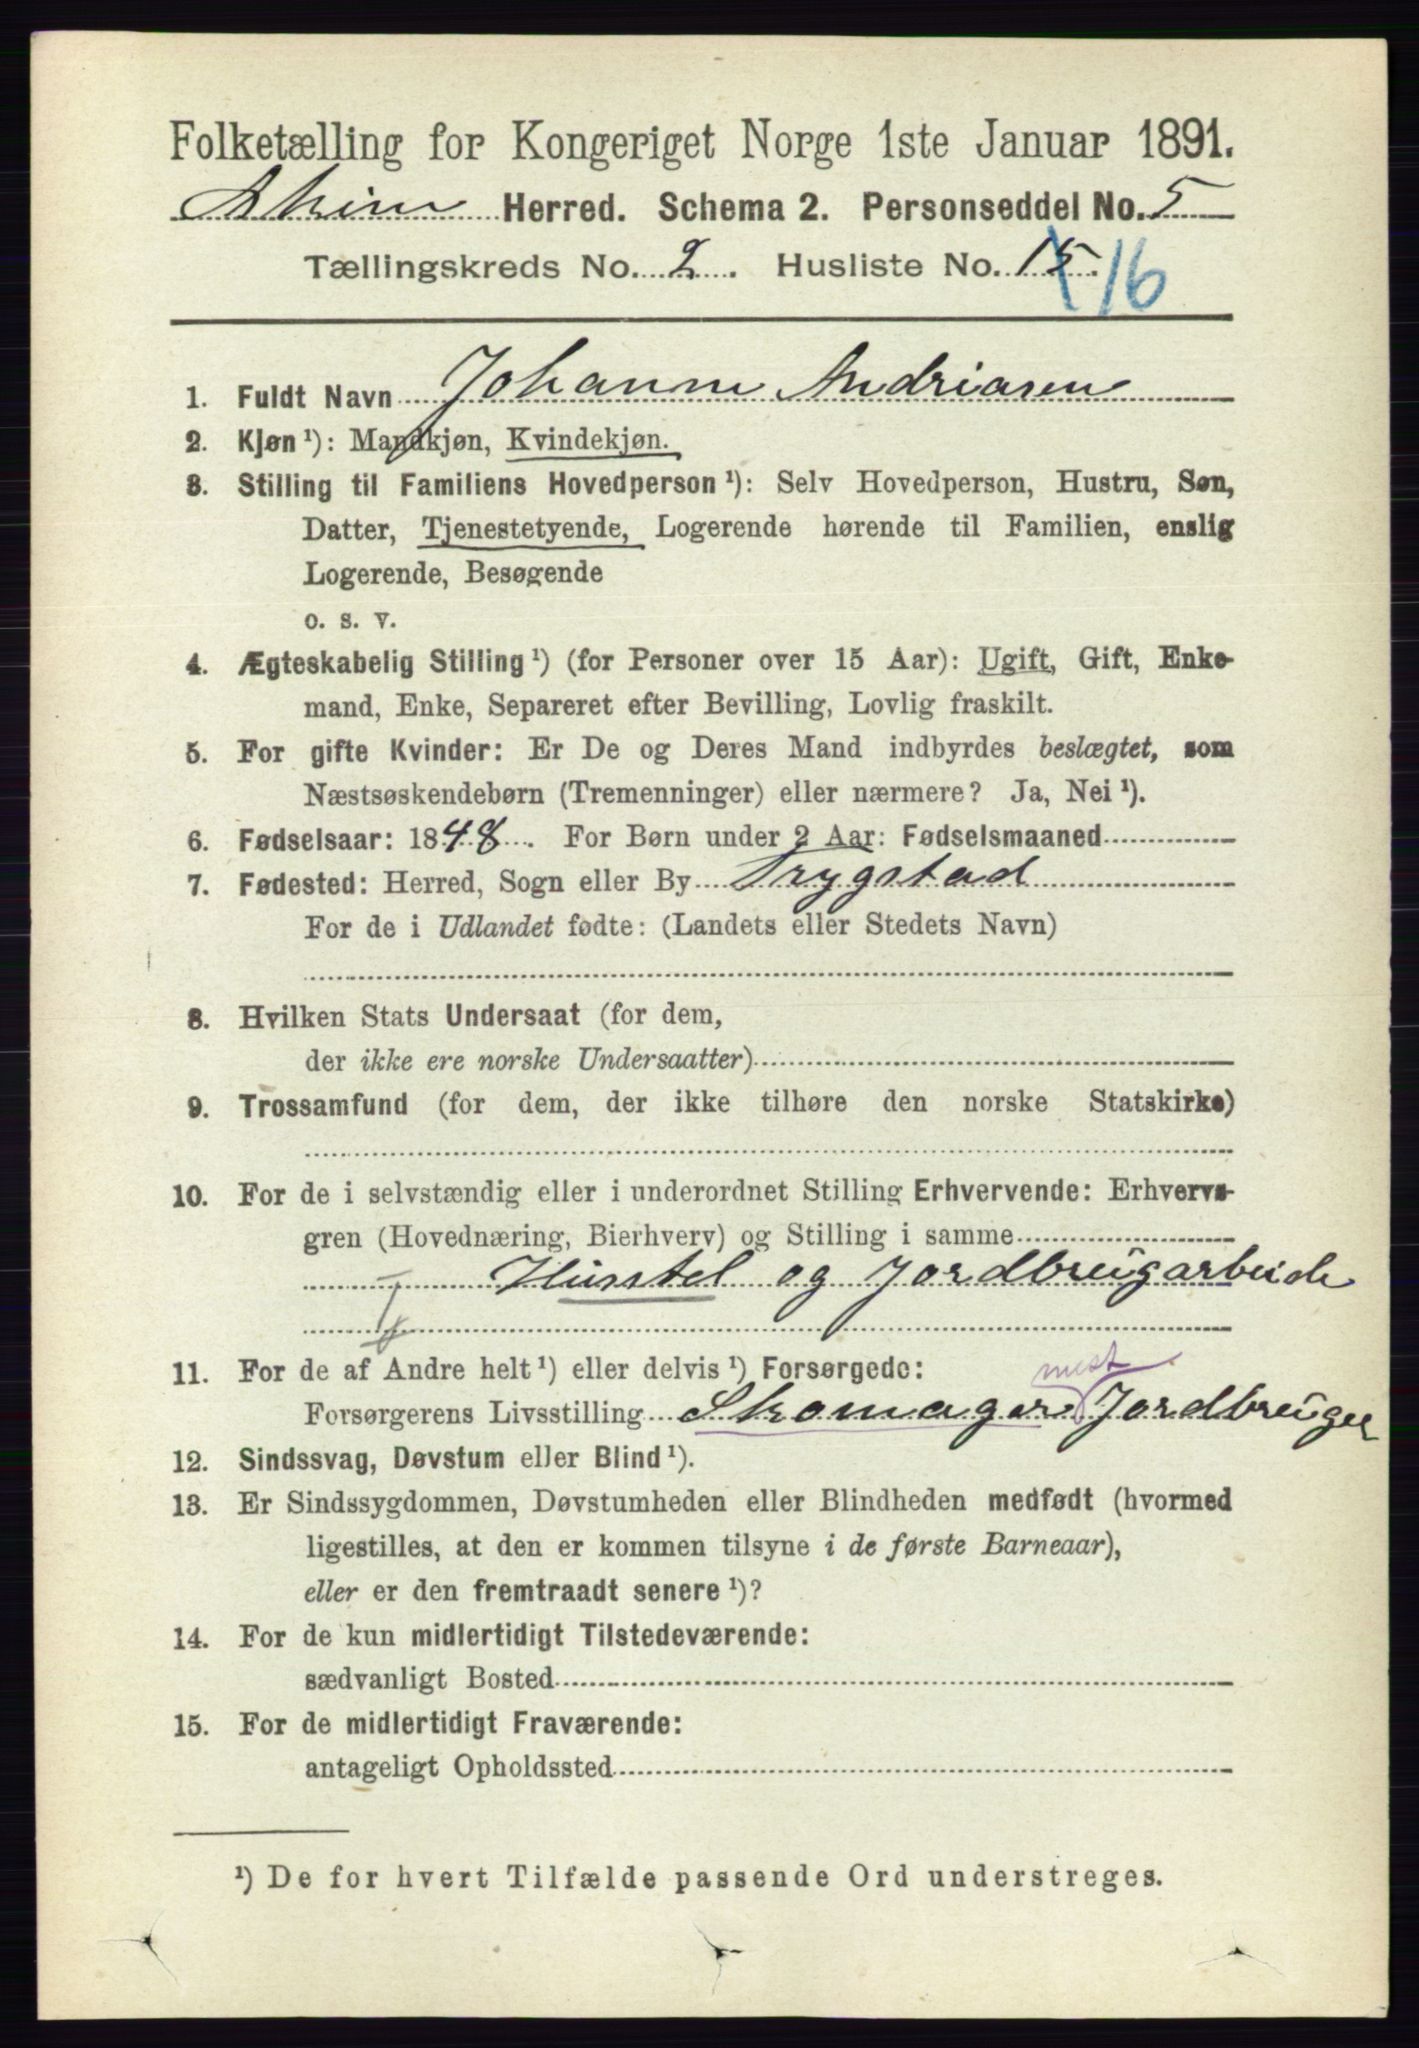 Folketælling for Kongeriget Norge 1ste Januar 1891.
Askim Herred. Schema 2. Personseddel No. 5
Tællingskreds No. 2. Husliste No. 15. 16
1. Fuldt Navn Johanne Andriasen
2. Kjøn ¹): Mandkjøn, Kvindekjøn.
3. Stilling til Familiens Hovedperson ¹): Selv Hovedperson, Hustru, Søn,
Datter, Tjenestetyende, Logerende hørende til Familien, enslig
Logerende, Besøgende
o. s. v.
4. Ægteskabelig Stilling ¹) (for Personer over 15 Aar): Ugift, Gift, Enke-
mand, Enke, Separeret efter Bevilling, Lovlig fraskilt.
5. For gifte Kvinder: Er De og Deres Mand indbyrdes beslægtet, som
Næstsøskendebørn (Tremenninger) eller nærmere? Ja, Nei ¹).
6. Fødselsaar: 1848. For Børn under 2 Aar: Fødselsmaaned
7. Fødested: Herred, Sogn eller By Trygstad
For de i Udlandet fødte: (Landets eller Stedets Navn)
8. Hvilken Stats Undersaat (for dem,
der ikke ere norske Undersaatter)
9. Trossamfund (for dem, der ikke tilhøre den norske Statskirke)
10. For de i selvstændig eller i underordnet Stilling Erhvervende: Erhvervs-
gren (Hovednæring, Bierhverv) og Stilling i samme
Husstel og Jordbrugarbeide
11. For de af Andre helt ¹) eller delvis ¹) Forsørgede:
mest
Forsørgerens Livsstilling Skomager Jordbruger
12. Sindssvag, Døvstum eller Blind ¹).
13. Er Sindssygdommen, Døvstumheden eller Blindheden medfødt (hvormed
ligestilles, at den er kommen tilsyne i de første Barneaar),
eller er den fremtraadt senere ¹)?
14. For de kun midlertidigt Tilstedeværende:
sædvanligt Bosted
15. For de midlertidigt Fraværende:
antageligt Opholdssted
¹) De for hvert Tilfælde passende Ord understreges.